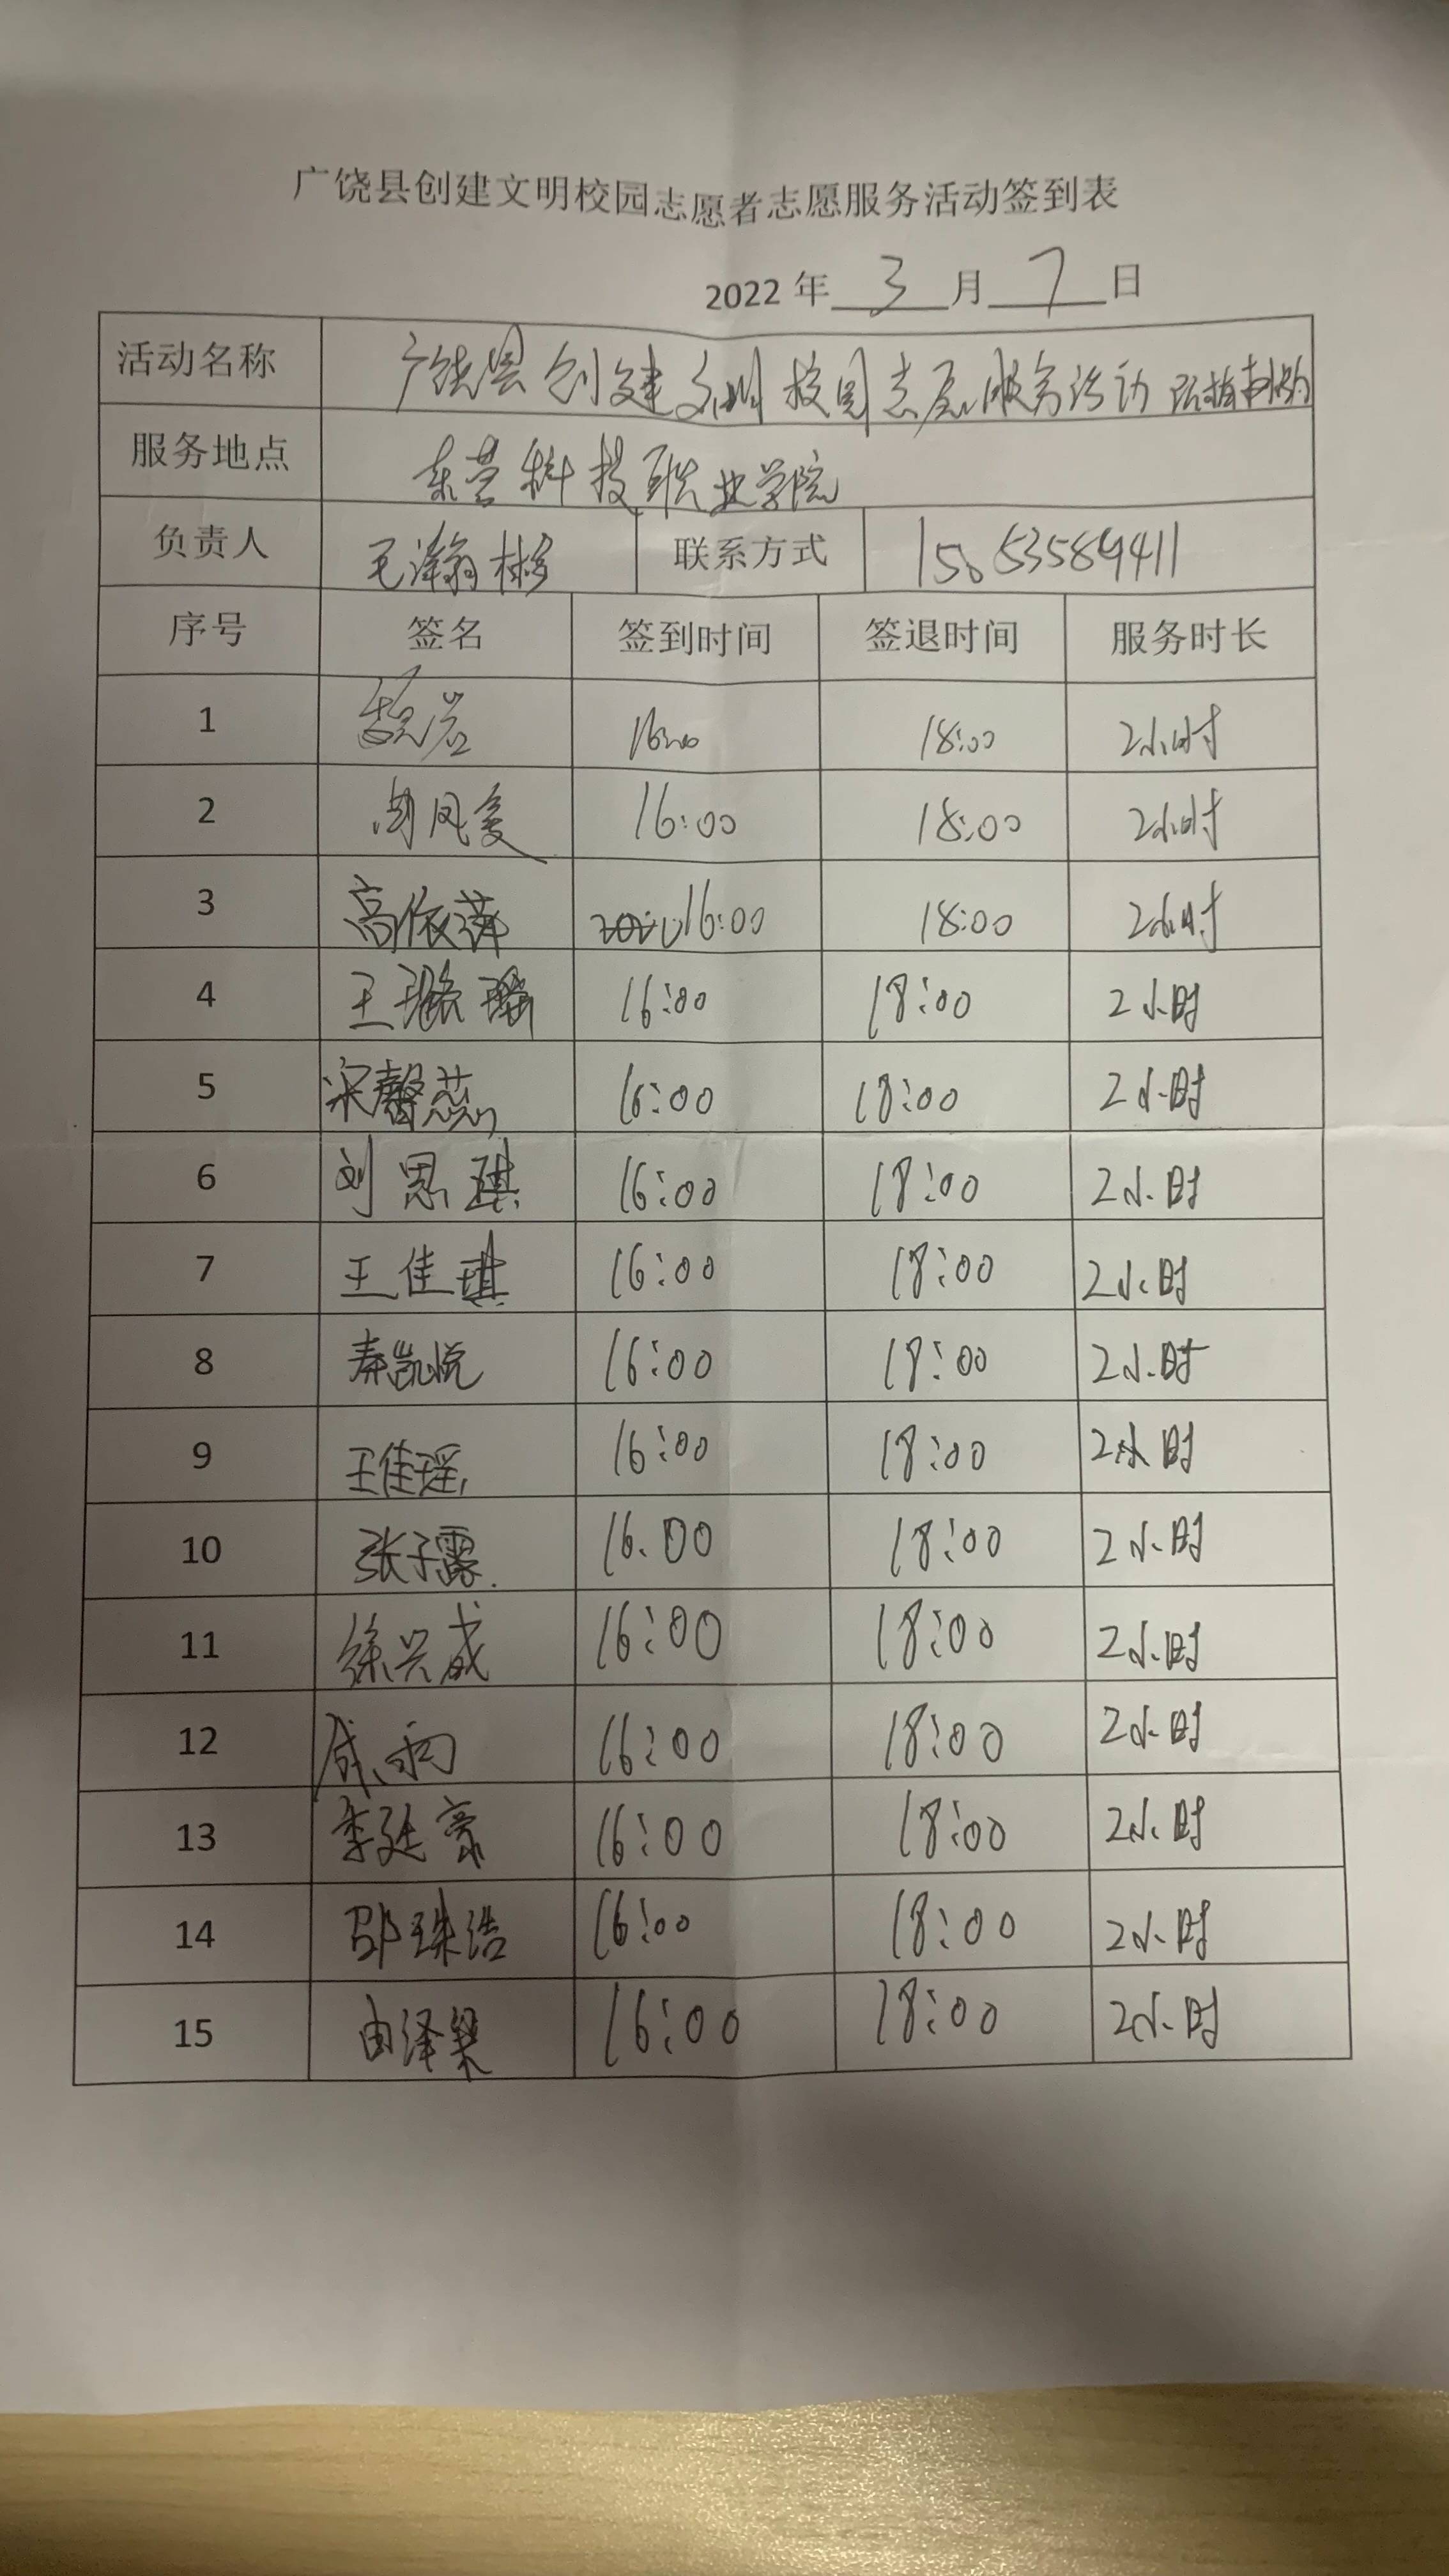 广饶县创建文明校园志愿者志愿服务活动签到表
2022 年 3 月 7 日
活动名称 广饶县创建文明校园志愿服务活动
服务地点 东营科技职业学院
负责人 毛泽翰彬 联系方式 15063589411
序号 签名 签到时间 签退时间 服务时长
1 16:00 18:00 2小时
2 周凤雯 16:00 18:00 2小时
3 高依萍 16:00 18:00 2小时
4 王璐瑶 16:00 18:00 2小时
5 宋馨蕊 16:00 18:00 2小时
6 刘思琪 16:00 18:00 2小时
7 王佳琪 16:00 18:00 2小时
8 秦凯悦 16:00 18:00 2小时
9 王佳瑶 16:00 18:00 2小时
10 张子露 16:00 18:00 2小时
11 徐兴成 16:00 18:00 2小时
12 16:00 18:00 2小时
13 李廷豪 16:00 18:00 2小时
14 邵珠浩 16:00 18:00 2小时
15 由泽梁 16:00 18:00 2小时